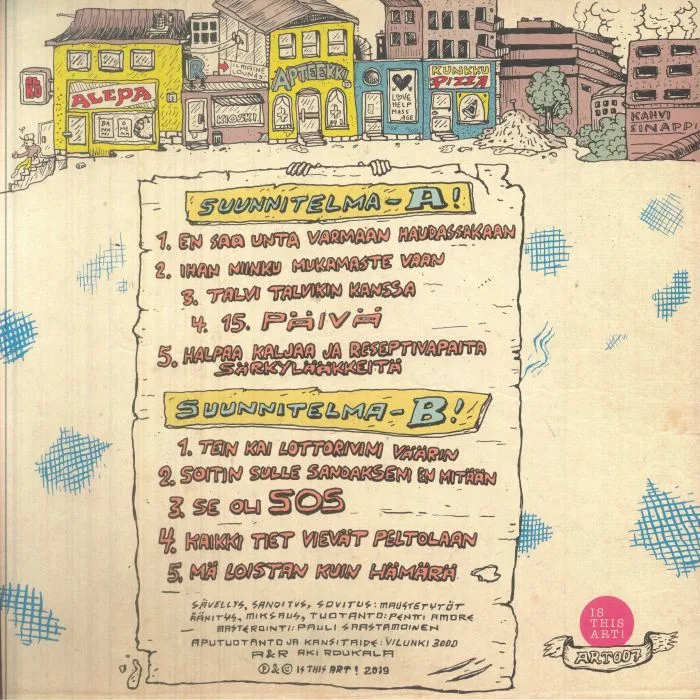 ALKO
ALEPA
BA
NA
NI
O
ME
NA
R
ILMAINEN
LOUNAS
KIOSKI
APTEEKKI
LOVE
HELP
MASS
AGE
KUNKKU
PIZZA
KAHVI
EINAPPI
SUUNNITELMA-A!
1. EN SAA UNTA VARMAAN HAUDASSAKAAN
2. IHAN NIINKU MUKAMASTE VAAN
3. TALVI TALVIKIN KANSSA
4. 15. PÄIVÄ
5. HALPAA KALJAA JA RESEPTIVAPAITA
SÄRKYLÄÄKKEITÄ
SUUNNITELMA-B!
1. TEIN KAI LOTTORIVINI VÄÄRIN
2. SOITIN SULLE SANOAKSENI EN MITÄÄN
3. SE OLI SOS
4. KAIKKI TIET VIEVÄT PELTOLAAN
5. MÄ LOISTAN KUIN HÄMÄRÄ
SÄVELLYS, SANOITUS, SOVITUS: MAUSTETYTÖT
ÄÄNITYS, MIKSAUS, TUOTANTO: PENTTI AMORE
MASTEROINTI: PAULI SAASTAMOINEN
APUTUOTANTO JA KANSITAIDE: VILUNKI 3000
A&R AKI ROUKALA
Ⓟ & © IS THIS ART! 2019
IS
THIS
ART!
ART007